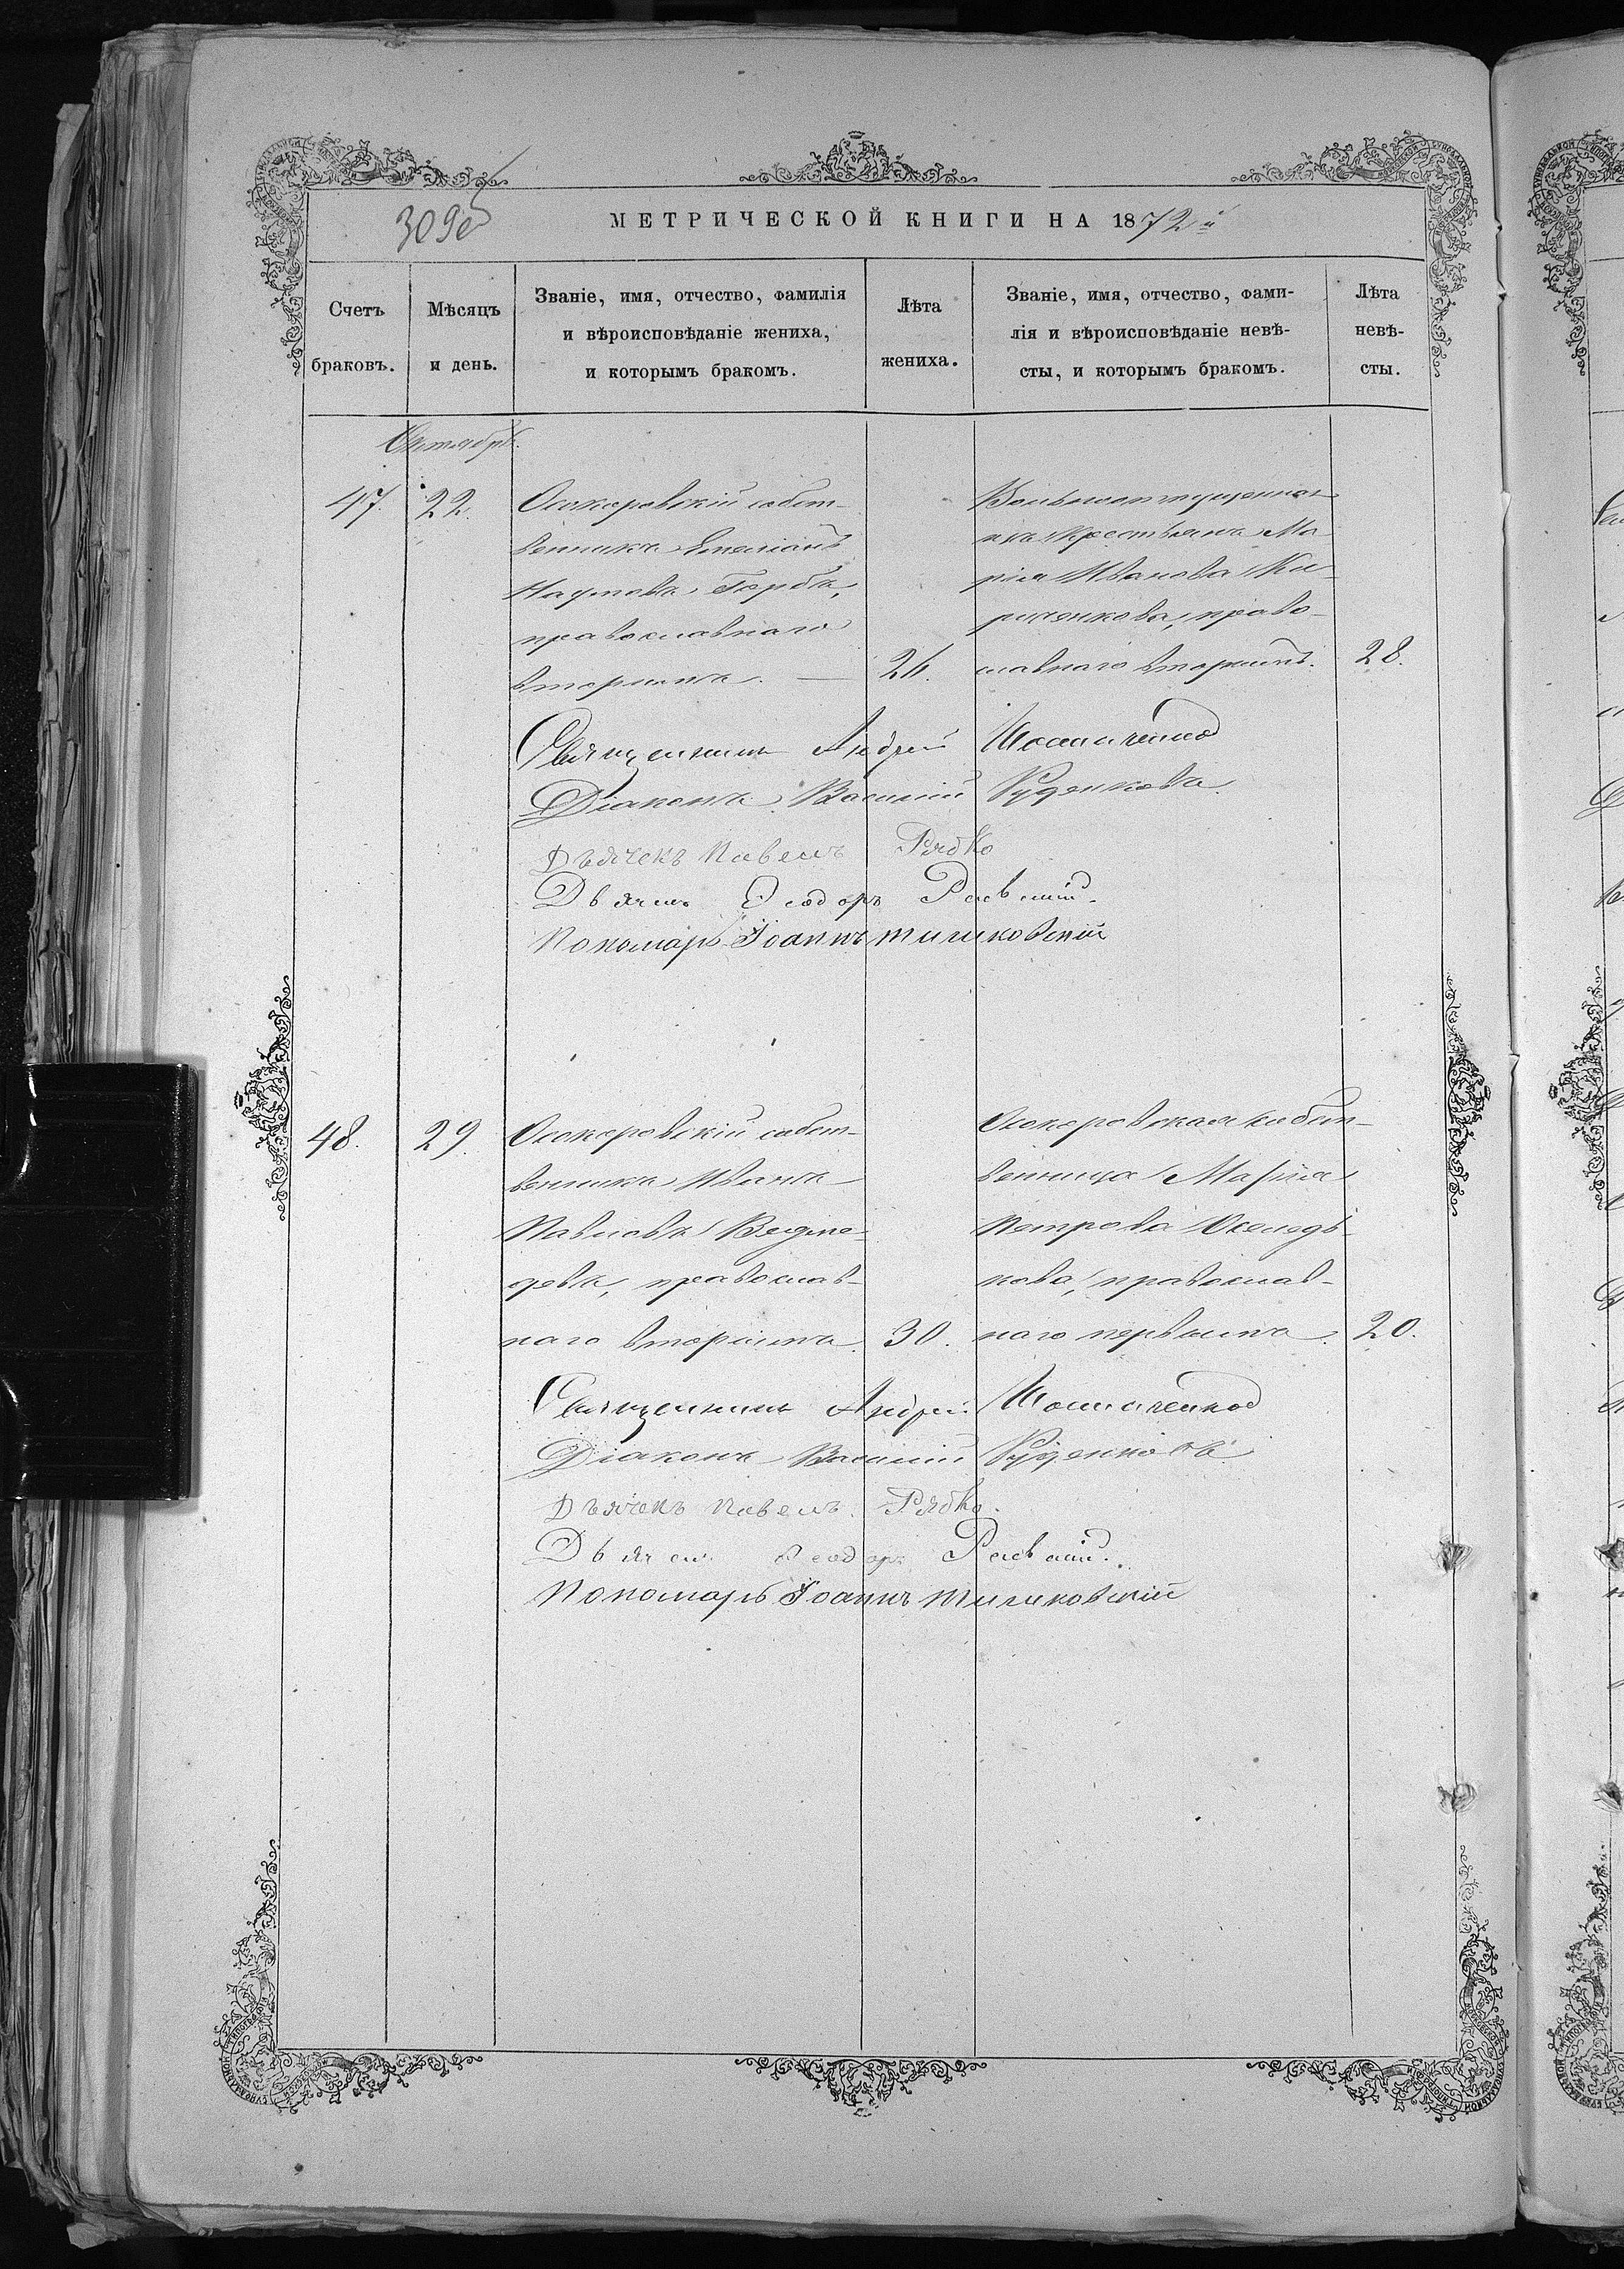 309об
МЕТРИЧЕСКОЙ КНИГИ НА 1872й
Счетъ браковъ.
Мѣсяцъ и день.
Званіе, имя, отчество, фамилія
и вѣроисповѣданіе жениха,
и которымъ бракомъ.
Лѣта жениха.
Званіе, имя, отчество, фами-
лія и вѣроисповѣданіе невѣ-
сты, и которымъ бракомъ.
Лѣта невѣ-
сты.
Октябрь.
47. 22.
Осокоровскій собст-
венникъ Емеліанъ
Наумовъ Горбъ,
православнаго
вторымъ. — 26.
Вольноотпущенна-
я крестьянка Ма
рія Иванова Ки-
риченкова, право-
славнаго вторымъ. 28.
Священникъ Андрей
Діаконъ Василій Руденковъ.
Дьячекъ Павелъ Рябко
Дьячекъ Ѳеодоръ Раевскій.
Пономарь Іоаннъ Тишковскій
48. 29.
Осокоровскій собст-
венникъ Иванъ
Павловъ Ведме-
девъ, православ-
наго вторымъ. 30.
Осокоровская собст-
венница Марія
Петрова Оселедь-
кова, православ-
наго первымъ. 20.
Священникъ Андрей
Діаконъ Василій Руденковъ
Дьячекъ Павелъ Рябко.
Дьячекъ Ѳеодоръ Раевскій.
Пономарь Іоаннъ Тишковскій